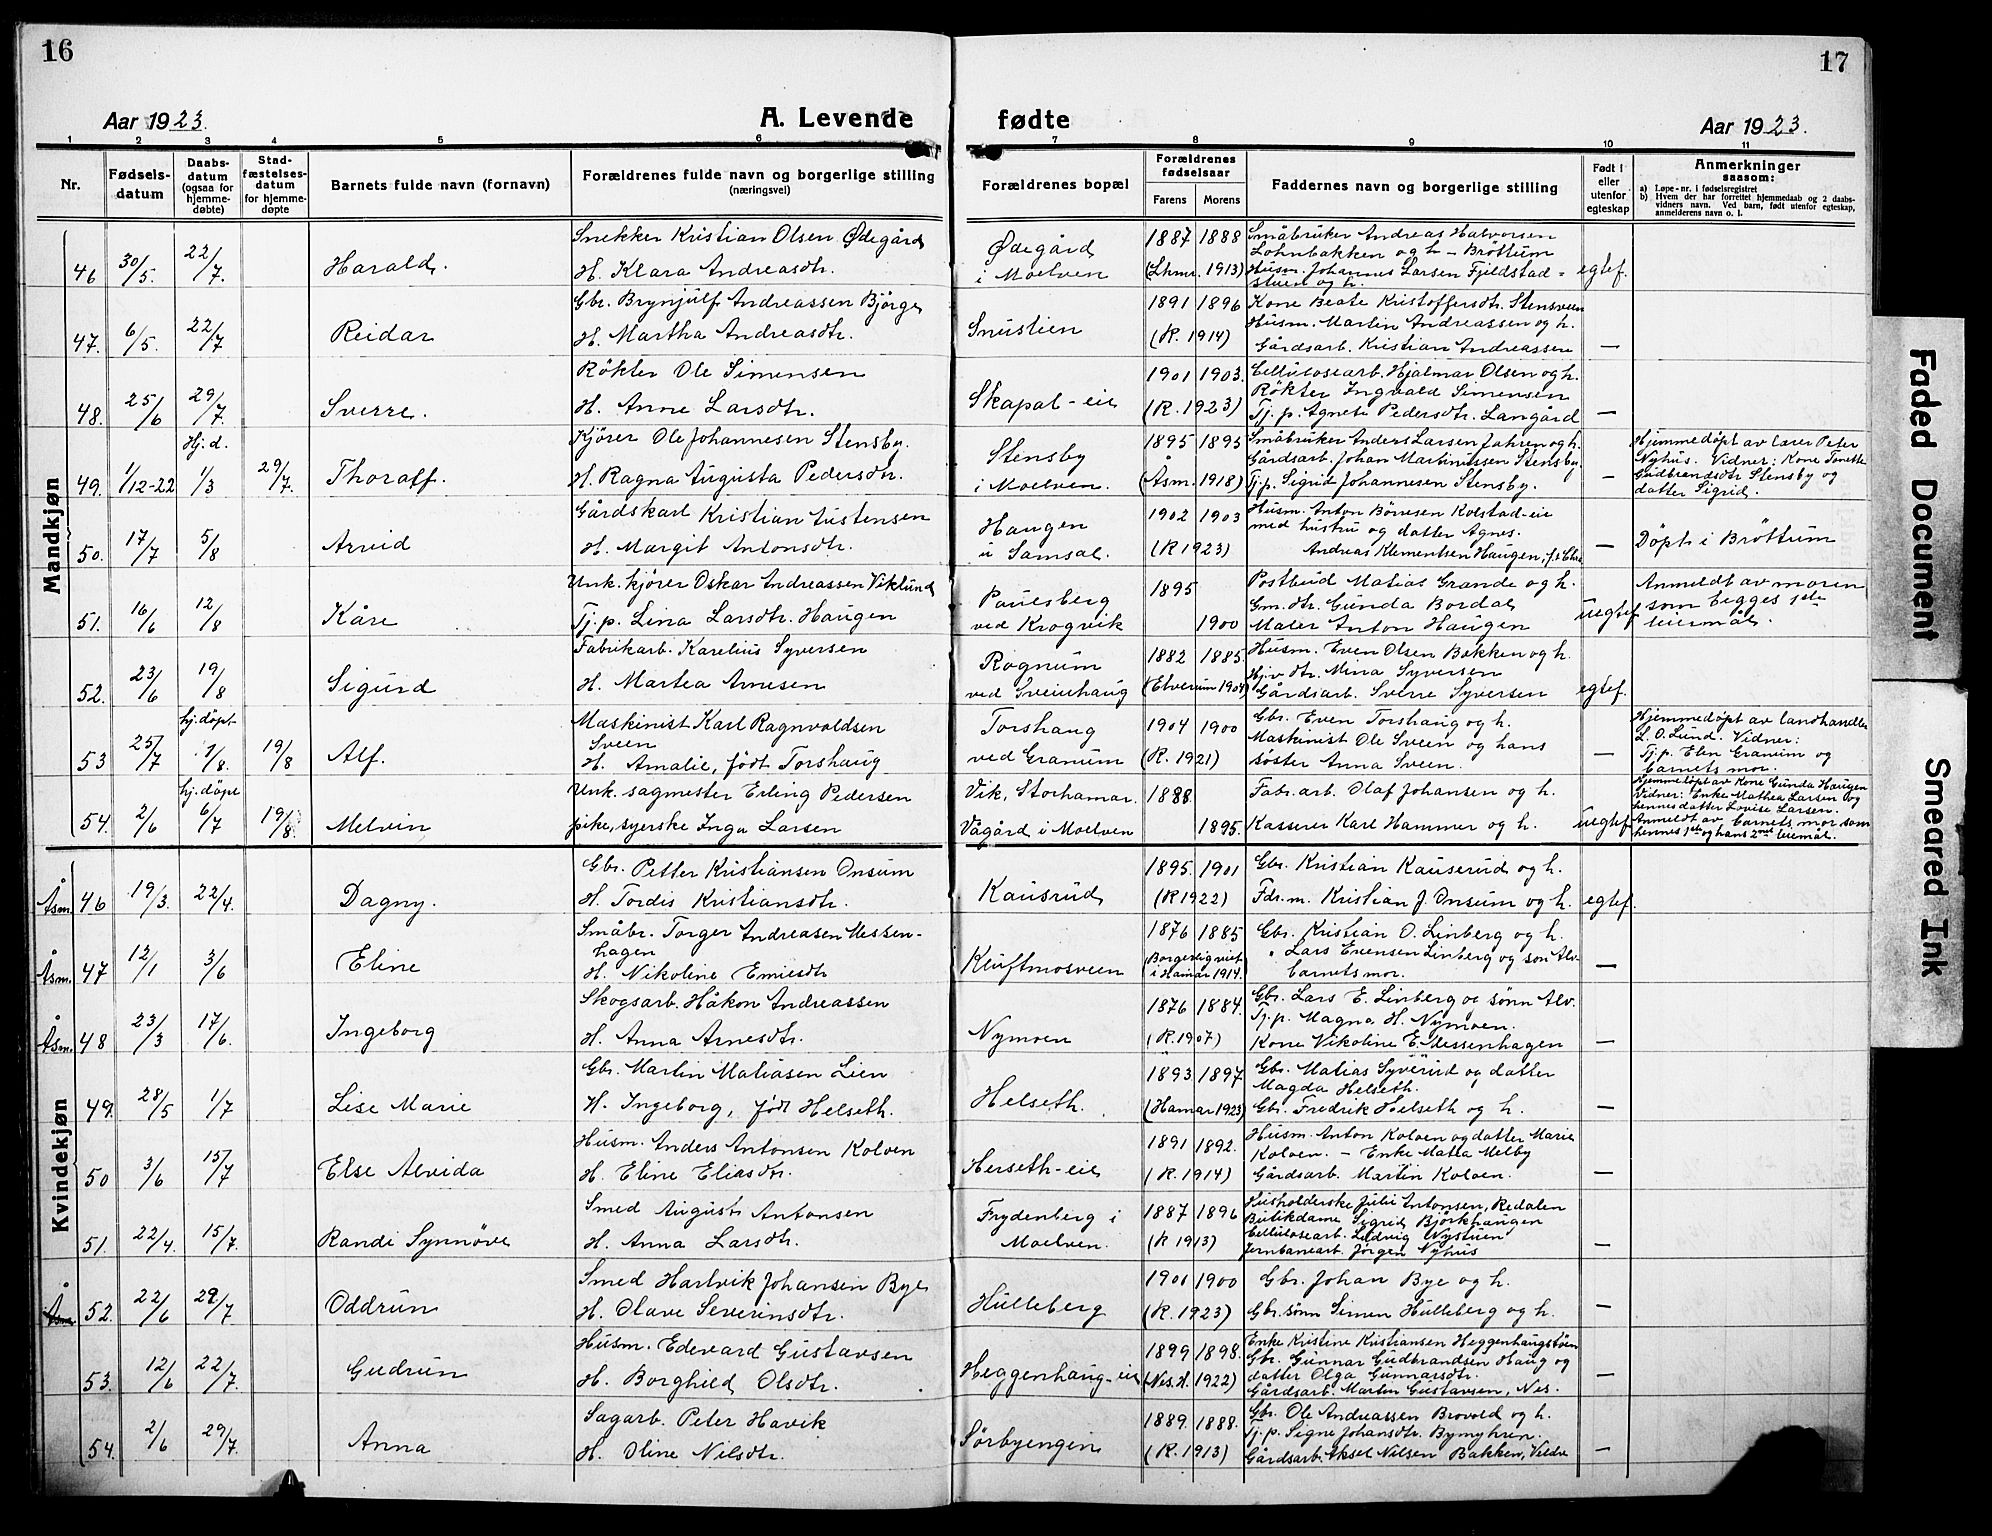 16
17
Aar 1923.
A. Levende
fødte
Aar 1923.
1 2 3 4 5 6 7 8 9 10 11
Nr.
Fødsels-
datum
Daabs-
datum
(ogsaa for
hjemme-
døbte)
Stad-
fæstelses-
datum
for hjemme-
døpte
Barnets fulde navn (fornavn)
Forældrenes fulde navn og borgerlige stilling
(næringsvei)
Forældrenes bopæl
Forældrenes
fødselsaar
Farens
Morens
Faddernes navn og borgerlige stilling
Født i
eller
utenfor
egteskap
Anmerkninger
saasom:
a) Løpe-nr. i fødselsregistret
b) Hvem der har forrettet hjemmedaab og 2 daabs-
vidners navn. Ved barn, født utenfor egteskap,
anmelderens navn o. l.
Mandkjøn
46 30/5. 22/7. Harald.
Snekker Kristian Olsen Ødegård
H. Klara Andreasdtr.
Ødegård
i Moelven
1887 1888
(Lhmr. 1913)
Småbruker Andreas Halvorsen
Lohnbakken og h – Brøttum
Husm. Johannes Larsen Fjeldstad-
stuen og h.
egtef.
47. 6/5. 22/7 Reidar
Gbr. Brynjulf Andreassen Bjørge
H. Martha Andreasdtr.
Snustien
1891 1896
(R. 1914)
Kone Beate Kristoffersdtr. Stensveen
Husm. Martin Andreassen og h.
Gårdsarb. Kristian Andreassen
—
48. 25/6 29/7. Sverre.
Røkter Ole Simensen
H. Anne Larsdtr.
Skapal-eie
1901 1903.
(R. 1923)
Cellulosearb. Hjalmar Olsen og h.
Røkter Ingvald Simensen
Tj. p. Agnete Pedersdtr. Langård
—
Hj. d.
49. 1/12-22 1/3 29/7. Thoralf.
Kjører Ole Johannesen Stensby.
H. Ragna Augusta Pedersdtr.
Stensby
i Moelven.
1895 1895
(Åsm. 1918)
Småbruker Anders Larsen Jahren og h.
Gårdsarb. Johan Martinussen Stensby.
Tj. p. Sigrid Johannesen Stensby.
—
Hjemmedøpt av lærer Peter
Nyhus. Vidner: Kone Tonette
Gudbrandsdtr Stensby og
datter Sigrid.
50. 17/7 5/8 Arvid
Gårdskarl Kristian Justensen
H. Margit Antonsdtr.
Haugen
u Samsal.
1902 1903
(R 1923)
Husm. Anton Børresen Kolstad-eie
med hustru og datter Agnes.
Andreas Klementsen Haugen,
—
Døpt i Brøttum
51. 16/6 12/8 Kåre
Unk. kjører Oskar Andreassen Viklund
Tj. p. Lina Larsdtr. Haugen
Paulsberg
ved Krogvik
1895
1900
Postbud Matias Grande og h.
Gm. dtr. Gunda Bordal
Maler Anton Haugen
uegtef
Anmeldt av moren
som begges 1ste
leiermål.
52. 23/6 19/8 Sigurd
Fabrikarb. Karelius Syversen
H. Martea Arnesen
Rognum
ved Sveinhaug
1882 1885.
(Elverum 1904)
Husm. Even Olsen Bakken og h.
Hj.v dtr. Mina Syversen
Gårdsarb. Sverre Syversen
egtef.
hj. døpt
53 25/7 1/8. 19/8 Alf.
Maskinist Karl Ragnvaldsen
Sveen
H. Amalie, født Torshaug
Torshaug
ved Granum
1904 1900
(R. 1921)
Gbr. Even Torshaug og h.
Maskinist Ole Sveen og hans
søster Anna Sveen.
—
Hjemmedøpt av landhandler
L. O. Lund. Vidner:
Tj. p. Elen Granum og
barnets mor.
hj. døpt
54. 2/6 6/7 19/8 Melvin
Unk. sagmester Erling Pedersen
pike, syerske Inga Larsen
Vik, Storhamar.
Vågård i Moelven
1888
1895.
Fabr. arb. Olaf Johansen og h.
Kasserer Karl Hammer og h.
uegtef
Hjemmedøpt av Kone Gunda Haugen
Vidner: Enke Mathea Larsen og
hennes datter Lovise Larsen.
Anmeldt av barnets mor som
hennes 1ste og hans 2net leiermål.
Kvindekjøn
Åsm. 46 19/3. 22/4. Dagny.
Gbr. Petter Kristiansen Onsum
H. Tordis Kristiansdtr.
Kausrud
1895. 1901
(R 1922)
Gbr. Kristian Kauserud og h.
Fdr. m. Kristian J. Onsum og h.
egtef.
Åsm. 47 12/1 3/6 Eline
Småbr. Torger Andreasen Messen-
hagen
H. Nikoline Emilsdtr
Kluftmosveen
1876 1885
(Borgerlig viet
i Hamar 1914.
Gbr. Kristian O. Linberg og h.
" Lars Evensen Linberg og søn Alv.
barnets mor.
—
Åsm. 48 23/3 17/6. Ingeborg
Skogsarb. Håkon Andreassen
H. Anna Arnesdtr.
Nymoen
1876 1884.
(R. 1907)
Gbr. Lars E. Linberg og sønn Alv.
Tj. p. Magna H. Nymoen.
Kone Nikoline E. Messenhagen
—
49. 28/5 1/7 Lise Marie
Gbr. Martin Matiasen Lien
H. Ingeborg, født Helseth.
Helseth.
1893 1897.
(Hamar 1923)
Gbr. Matias Syverud og datter
Magda Helseth.
Gbr. Fredrik Helseth og h.
—
50 3/6 15/7 Else Alvida
Husm. Anders Antonsen Kolven
H. Eline Eliasdtr.
Herseth-eie
1891 1892.
(R. 1914)
Husm. Anton Kolven og datter Marie
Kolven. – Enke Matta Melby
Gårdsarb. Martin Kolven.
—
51. 22/4. 15/7. Randi Synnøve
Smed August Antonsen
H. Anna Larsdtr.
Frydenberg i
Moelven.
1887 1896
(R 1913)
Husholderske Juli Antonsen, Redalen
Butikdame Sigrid Bjørkhaugen
Cellulosearb. Ludvig Nystuen
Jernbanearb. Jørgen Nyhus
—
Å
Åsm. 52. 22/6 29/7 Oddrun
Smed Hartvik Johansen Bye
H. Olave Severinsdtr.
Hulleberg
1901 1900
(R. 1923)
Gbr. Johan Bye og h.
Gbr. sønn Simen Hulleberg og h.
—
53. 12/6 22/7. Gudrun
Husm. Edevard Gustavsen
H. Borghild Olsdtr.
Heggenhaug-eie
1899 1898.
(Nes. H. 1922)
Enke Kristine Kristiansen Heggenhaugstøen
Gbr. Gunnar Gudbrandsen Haug og
datter Olga Gunnarsdtr.
Gårdsarb. Martin Gustavsen, Nes.
—
54. 2/6 29/7. Anna
Sagarb. Peter Havik
H. Oline Nilsdtr.
Sørbyengen
1889. 1888.
(R. 1913)
Gbr. Ole Andreassen Brovold og h.
Tj. p. Signe Johansdtr. Bymyhren.
Gårdsarb. Aksel Nilsen Bakken, Veldre
—
Faded Document
Smeared Ink